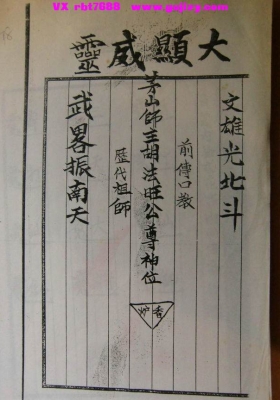 VX rbt7688 www.gujixg.com
大顯威靈
文雄光北斗
前傳口教
茅山師主胡法旺公尊神位
香炉
歷代祖師
武畧振南天